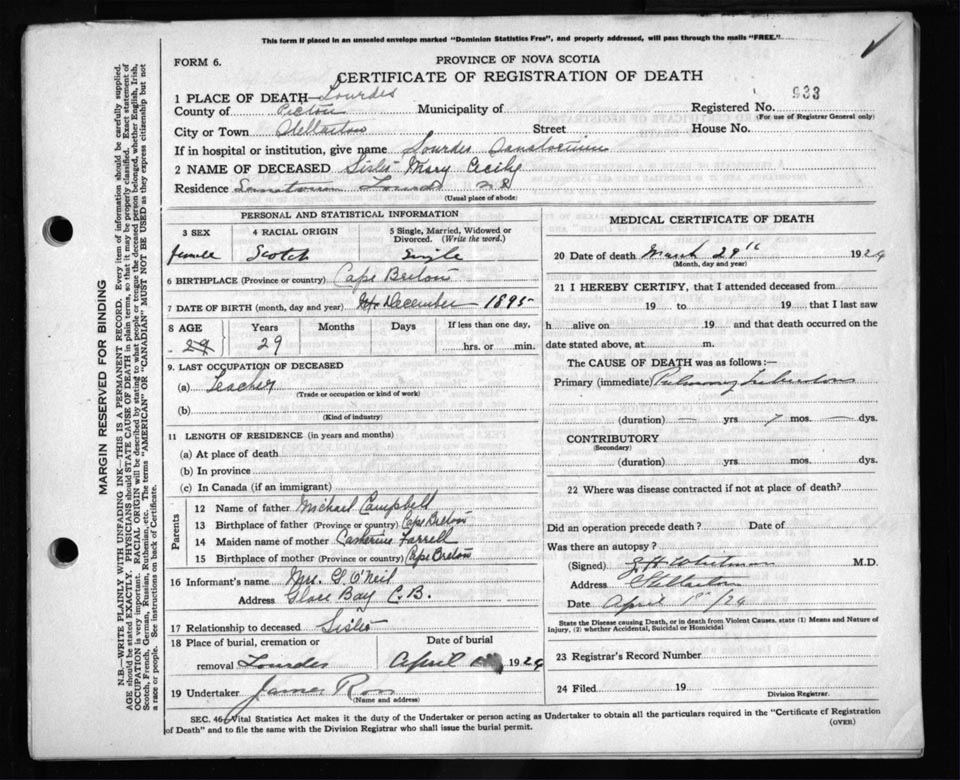 This form if placed in an unsealed envelope marked "Dominion Statistics Free", and properly addressed, will pass through the mails "FREE."
FORM 6.
PROVINCE OF NOVA SCOTIA
CERTIFICATE OF REGISTRATION OF DEATH
1 PLACE OF DEATH Lourdes
County of Pictou Municipality of Registered No. 933
(For use of Registrar General only)
City or Town Stellarton Street House No.
If in hospital or institution, give name Lourdes Sanatorium
2 NAME OF DECEASED Sister Mary Cecily
Residence Sanatorium Lourdes
(Usual place of abode)
PERSONAL AND STATISTICAL INFORMATION
3 SEX 4 RACIAL ORIGIN 5 Single, Married, Widowed or Divorced. (Write the word.)
Female Scotch Single
6 BIRTHPLACE (Province or country) Cape Breton
7 DATE OF BIRTH (month, day and year) December 1895
8 AGE Years Months Days If less than one day,
29 29 hrs. or min.
9. LAST OCCUPATION OF DECEASED
(a) Teacher
(Trade or occupation or kind of work)
(b)
(Kind of industry)
11 LENGTH OF RESIDENCE (in years and months)
(a) At place of death
(b) In province
(c) In Canada (if an immigrant)
Parents
12 Name of father Michael Campbell
13 Birthplace of father (Province or country) Cape Breton
14 Maiden name of mother Catherine Farrell
15 Birthplace of mother (Province or country) Cape Breton
16 Informant's name Mrs. G. O'Neil
Address Glace Bay C.B.
17 Relationship to deceased Sister
18 Place of burial, cremation or Date of burial
removal Lourdes April 1924
19 Undertaker James Ross
(Name and address)
MEDICAL CERTIFICATE OF DEATH
20 Date of death March 29th 1924
(Month, day and year)
21 I HEREBY CERTIFY, that I attended deceased from
19 to 19 that I last saw
h alive on 19 and that death occurred on the
date stated above, at m.
The CAUSE OF DEATH was as follows:—
Primary (immediate) Pulmonary Tuberculosis
(duration) — yrs 7 mos. — dys.
CONTRIBUTORY
(Secondary)
(duration) yrs. mos. dys.
22 Where was disease contracted if not at place of death?
Did an operation precede death? Date of
Was there an autopsy?
(Signed) Whitman M.D.
Address Stellarton
Date April 1st/24
State the Disease causing Death, or in death from Violent Causes, state (1) Means and Nature of Injury, (2) whether Accidental, Suicidal or Homicidal
23 Registrar's Record Number
24 Filed 19
Division Registrar.
SEC. 46—Vital Statistics Act makes it the duty of the Undertaker or person acting as Undertaker to obtain all the particulars required in the "Certificate of Registration
of Death" and to file the same with the Division Registrar who shall issue the burial permit.
(OVER)
MARGIN RESERVED FOR BINDING
N.B.—WRITE PLAINLY WITH UNFADING INK—THIS IS A PERMANENT RECORD. Every item of information should be carefully supplied.
AGE should be stated EXACTLY. PHYSICIANS should STATE CAUSE OF DEATH in plain terms, so that it may be properly classified. Exact statement of
OCCUPATION is very important. RACIAL ORIGIN will be described by stating to what people or tongue the deceased person belonged, whether English, Irish,
Scotch, French, German, Russian, Ruthenian, etc. The terms "AMERICAN" OR "CANADIAN" MUST NOT BE USED as they express citizenship but not
a race or people. See instructions on back of Certificate.